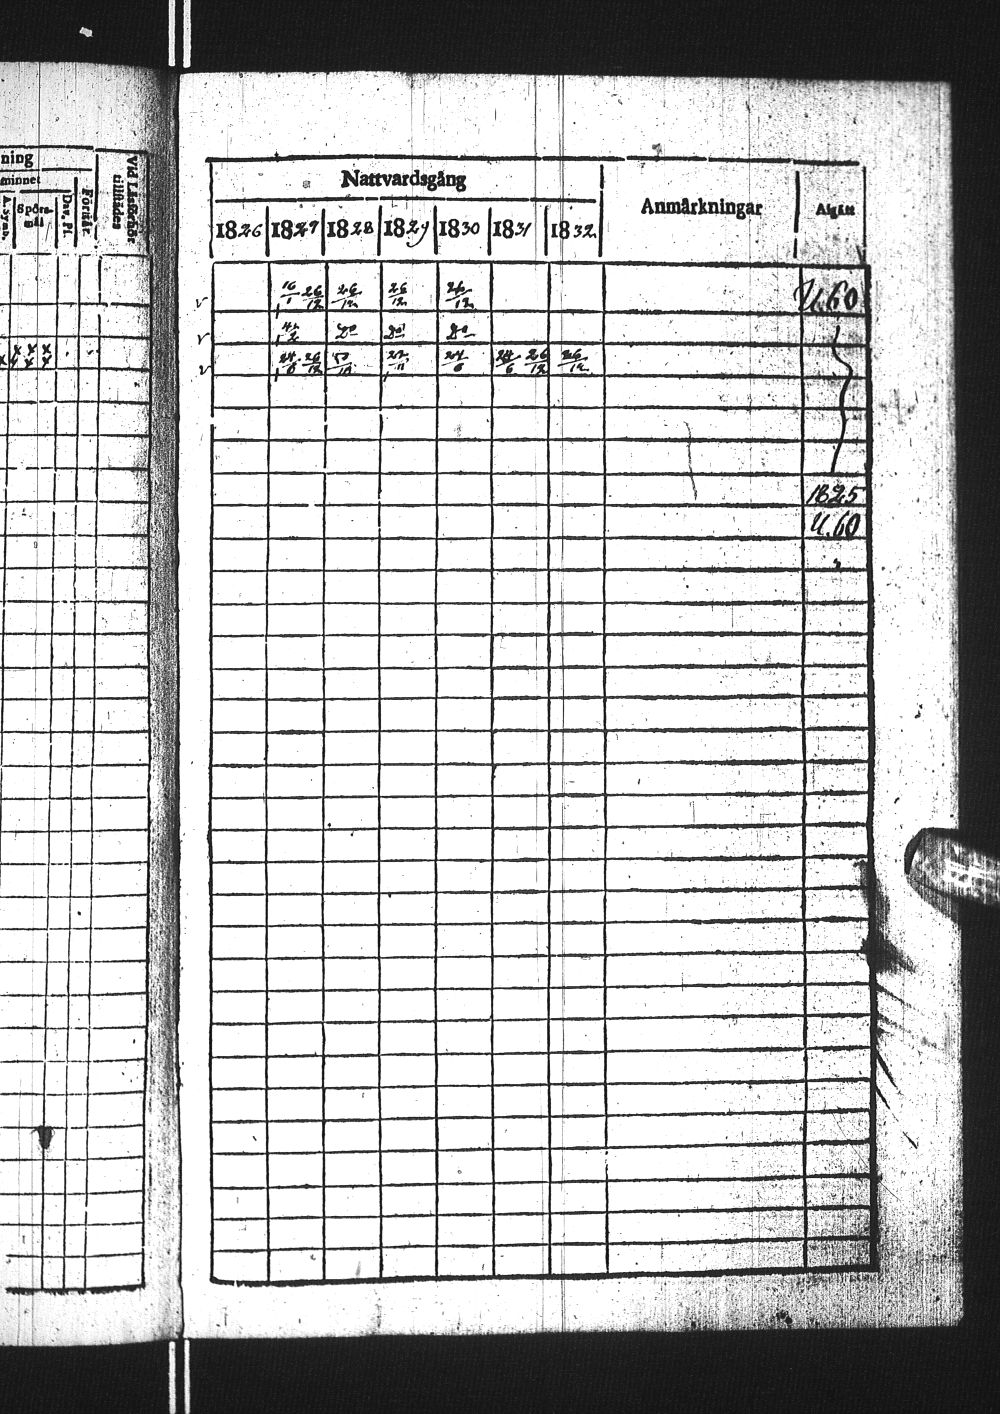 ning
minnet
Spörs-
mål
Dav. Ps.
Förstår.
Vid Läsförhör
tillstädes
Nattvardsgång
Anmärkningar
Afgått
1826 1827 1828 1829 1830 1831 1832
16/1 26/12 26/12 26/12 26/12 U.60
24/6 26/12 24/6 24/6 26/12 26/12
1825
U.60